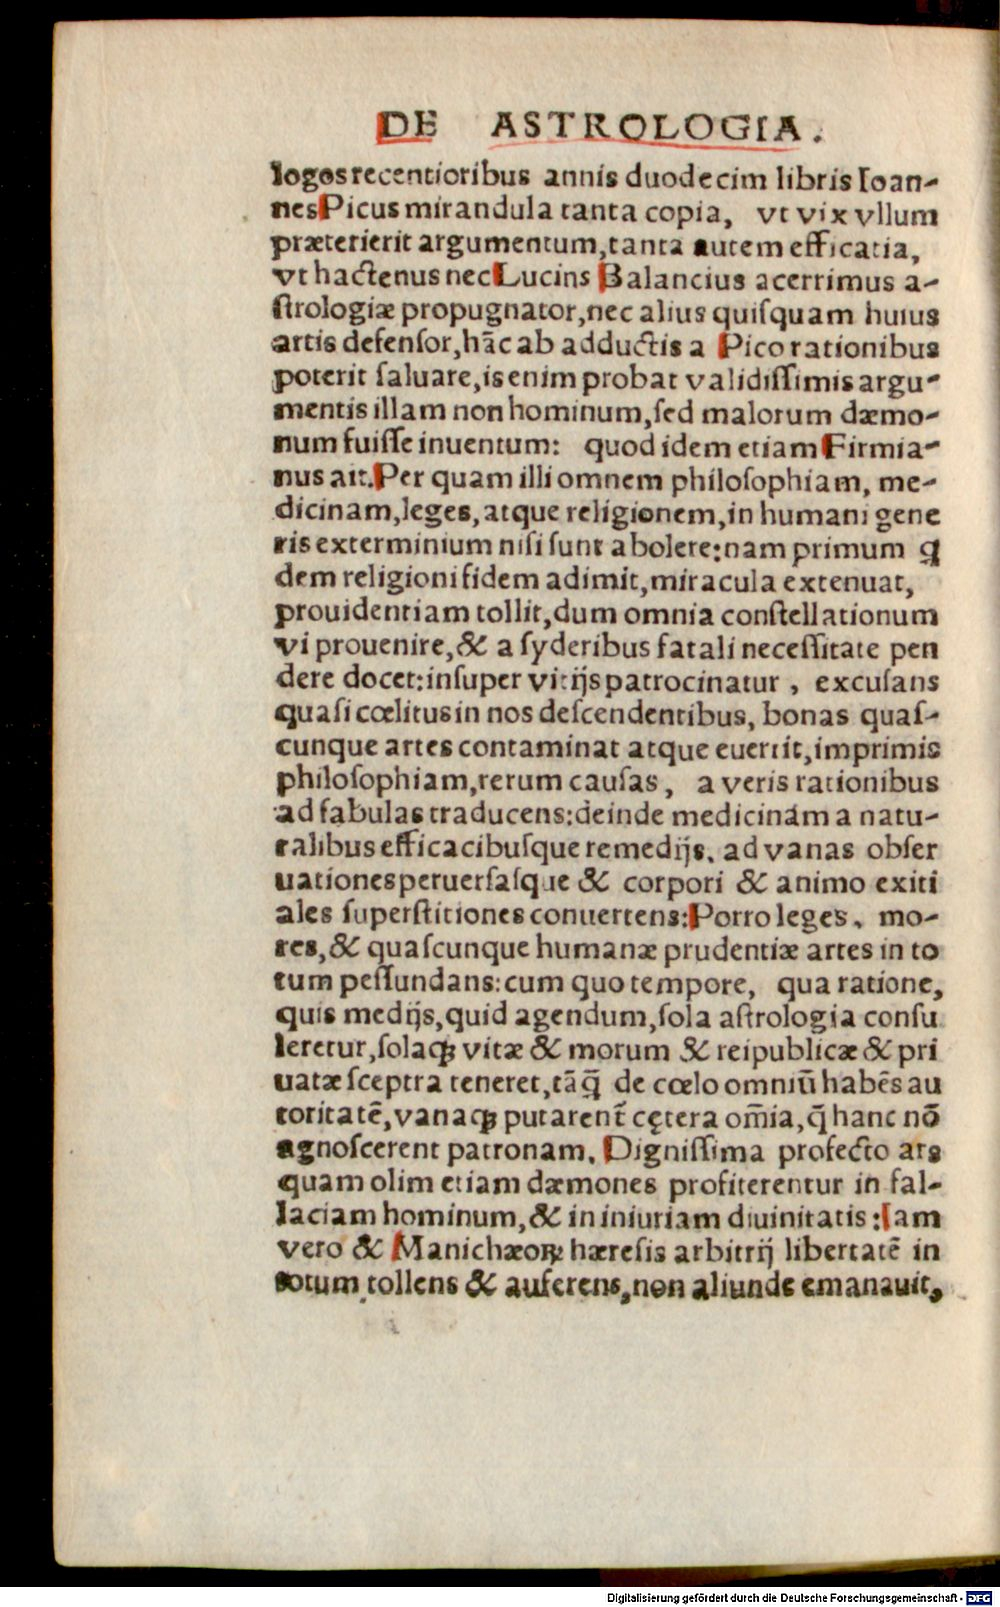 DE ASTROLOGIA.
logos recentioribus annis duodecim libris Ioan-
nes Picus mirandula tanta copia, vt vix vllum
præterierit argumentum, tanta autem efficatia,
vt hactenus nec Lucins Balancius acerrimus a-
ſtrologiæ propugnator, nec alius quiſquam huius
artis defenſor, hāc ab adductis a Pico rationibus
poterit ſaluare, is enim probat validiſſimis argu-
mentis illam non hominum, ſed malorum dæmo-
num fuiſſe inuentum: quod idem etiam Firmia-
nus ait. Per quam illi omnem philoſophiam, me-
dicinam, leges, atque religionem, in humani gene
ris exterminium niſi ſunt abolere: nam primum ꝗ
dem religioni fidem adimit, miracula extenuat,
prouidentiam tollit, dum omnia conſtellationum
vi prouenire, & a ſyderibus fatali neceſſitate pen
dere docet: inſuper vitijs patrocinatur, excuſans
quaſi cœlitus in nos deſcendentibus, bonas quaſ-
cunque artes contaminat atque euertit, imprimis
philoſophiam, rerum cauſas, a veris rationibus
ad fabulas traducens: deinde medicinam a natu-
ralibus efficacibuſque remedijs. ad vanas obſer
uationes peruerſaſque & corpori & animo exiti
ales ſuperſtitiones conuertens: Porro leges, mo-
res, & quaſcunque humanæ prudentiæ artes in to
tum peſſundans: cum quo tempore, qua ratione,
quis medijs, quid agendum, ſola aſtrologia conſu
leretur, ſolaqꝫ vitæ & morum & reipublicæ & pri
uatæ ſceptra teneret, tāq̄ de cœlo omniū habēs au
toritatē, vanaqꝫ putarent̄ cętera om̄ia, q̄ hanc nō
agnoſcerent patronam. Digniſſima profecto ars
quam olim etiam dæmones profiterentur in fal-
laciam hominum, & in iniuriam diuinitatis: Iam
vero & Manichæoꝝ hæreſis arbitrij libertatē in
totum tollens & auferens, non aliunde emanauit,
Digitalisierung gefördert durch die Deutsche Forschungsgemeinschaft - DFG